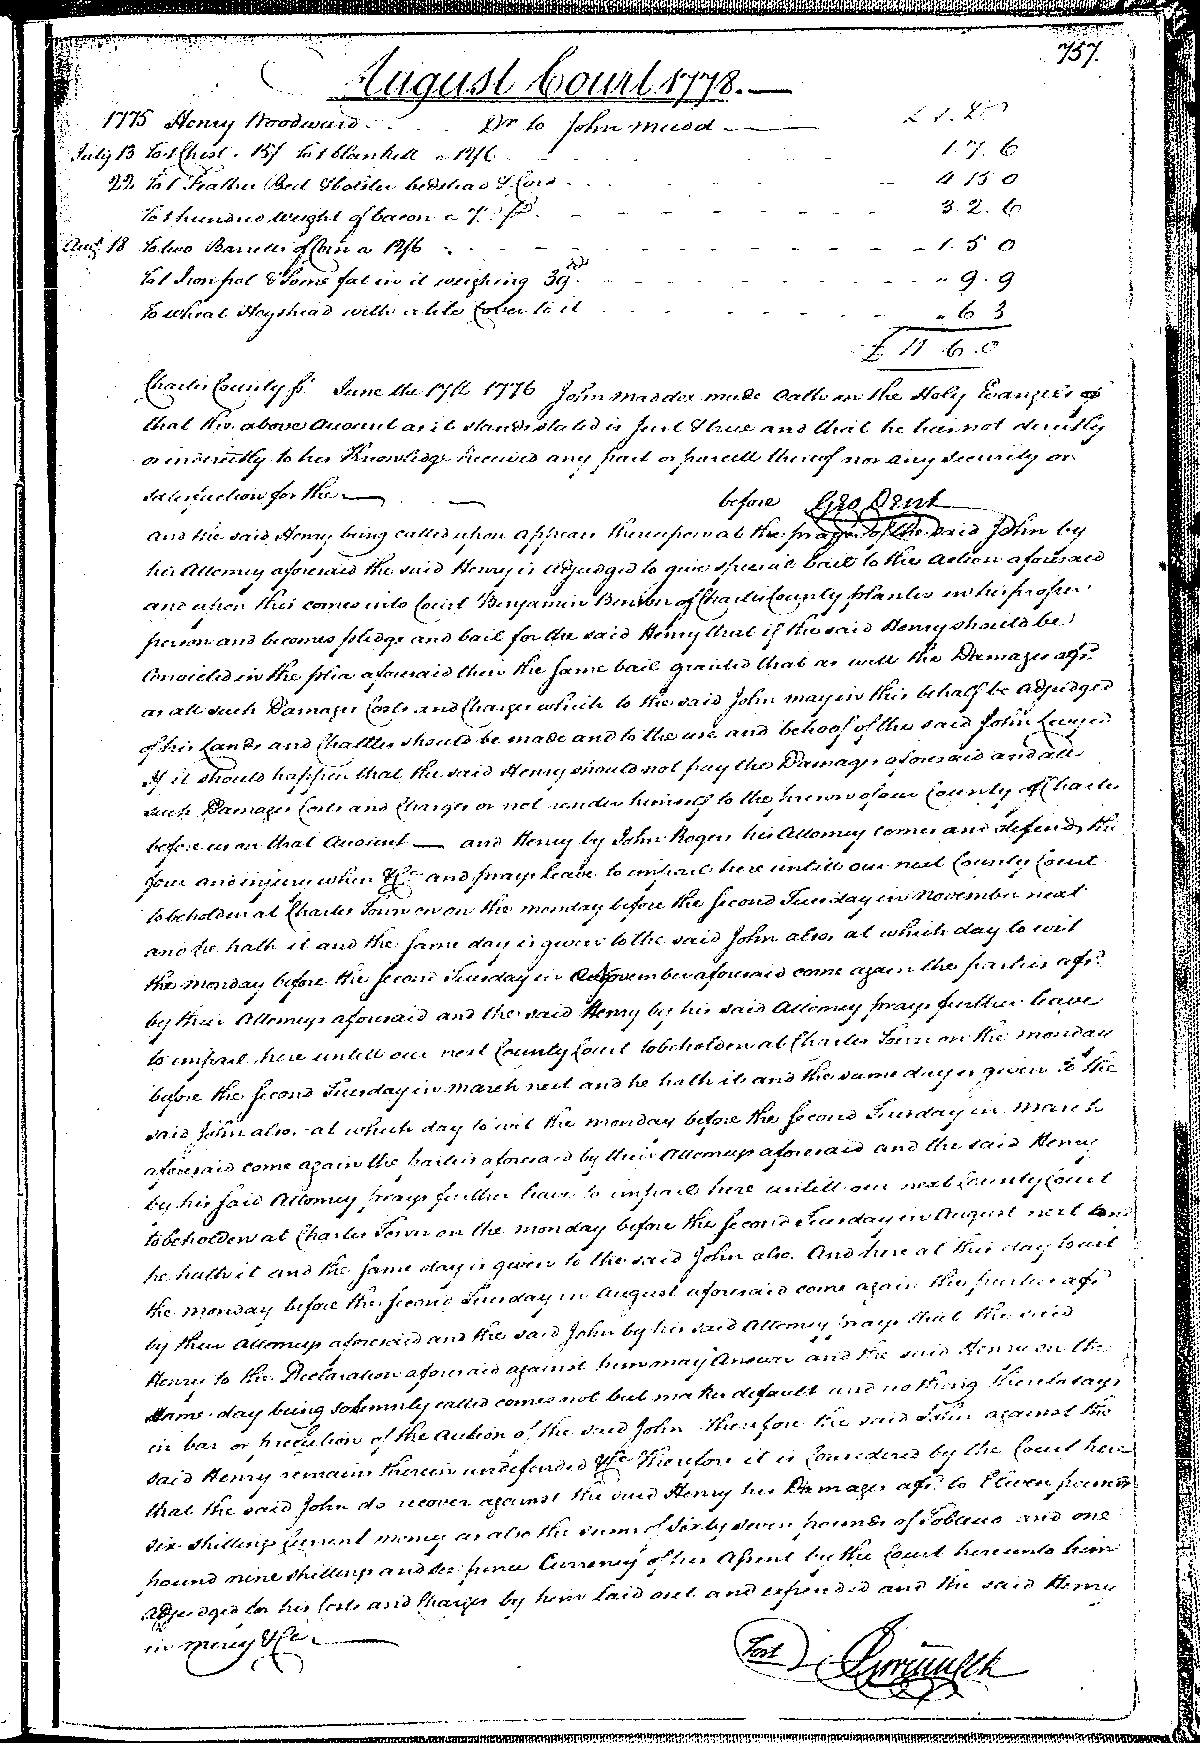 757.
August Court 1778.—
1775 Henry Woodward Dr to John Mudd —
July 13 To 1 Chest . 15/ To 1 blankett a 12/6 1. 7. 6
22 To 1 Feather Bed & bolster bedstead & Cord 4 15 0
To 1 hundred weight of bacon a 7. 3. 2. 6
Augt 18 To two Barrells of Corn a 12/6 1. 5 0
To 1 Iron pot & Some fat in it weighing 39 " 9. 9
To wheat Hogshead with a Cover to it " 6 3
£ 11 6. 0
Charles County ss. June the 17th 1776 John made Oath on the Holy Evangels of
that the above Account as it stands stated is Just & true and that he has not directly
or indirectly to his Knowledge received any part or parcell thereof nor any Security or
satisfaction for the — before Geo Dent
and the said Henry being called upon appears thereupon at the prayer of the said John by
his Attorney aforesaid the said Henry is adjudged to give special bail to the action aforesaid
and upon this comes into Court Benjamin of Charles County planter in his proper
person and becomes pledge and bail for the said Henry that if the said Henry should be
Convicted in the plea aforesaid then the same bail granted that as well the Damages afsd
as all such Damages Costs and Charges which to the said John may in this behalf be adjudged
of his Lands and Chattles should be made and to the use and behoof of the said John Levyed
if it should happen that the said Henry should not pay the Damages aforesaid and all
such Damages Costs and Charges or not render himself to the prison of our County of Charles
before us on that Account — and Henry by John Rogers his Attorney comes and defends the
force and injury when &Ca and prays leave to imparl here untill our next County Court
to be holden at Charles Town on on the monday before the second Tuesday in November next
and he hath it and the same day is given to the said John also, at which day to wit
the monday before the second Tuesday in November aforesaid come again the parties afsd
by their Attorneys aforesaid and the said Henry by his said Attorney prays further leave
to imparl here untill our next County Court to be holden at Charles Town on the monday
before the second Tuesday in march next and he hath it and the same day is given to the
said John also, at which day to wit the monday before the second Tuesday in march
aforesaid come again the parties aforesaid by their Attorneys aforesaid and the said Henry
by his said Attorney prays further leave to imparl here untill our next County Court
to be holden at Charles Town on the monday before the second Tuesday in August next and
he hath it and the same day is given to the said John also. And here at this day to wit
the monday before the second Tuesday in August aforesaid come again the parties afsd
by their Attorneys aforesaid and the said John by his said Attorney prays that the said
Henry to the Declaration aforesaid against him may Answer and the said Henry on the
same day being solemnly called comes not but makes default and nothing thereto says
in bar or preclusion of the action of the said John therefore the said John against the
said Henry remains therein undefended &Ca Therefore it is Considered by the Court here
that the said John do recover against the said Henry his Damages afsd to Eleven pounds
six shillings Current money as also the sum of sixty seven pounds of Tobacco and one
pound nine shillings and six pence Currency of his Assent by the Court here unto him
adjudged for his Costs and Charges by him laid out and expended and the said Henry
in mercy &Ca —
Test